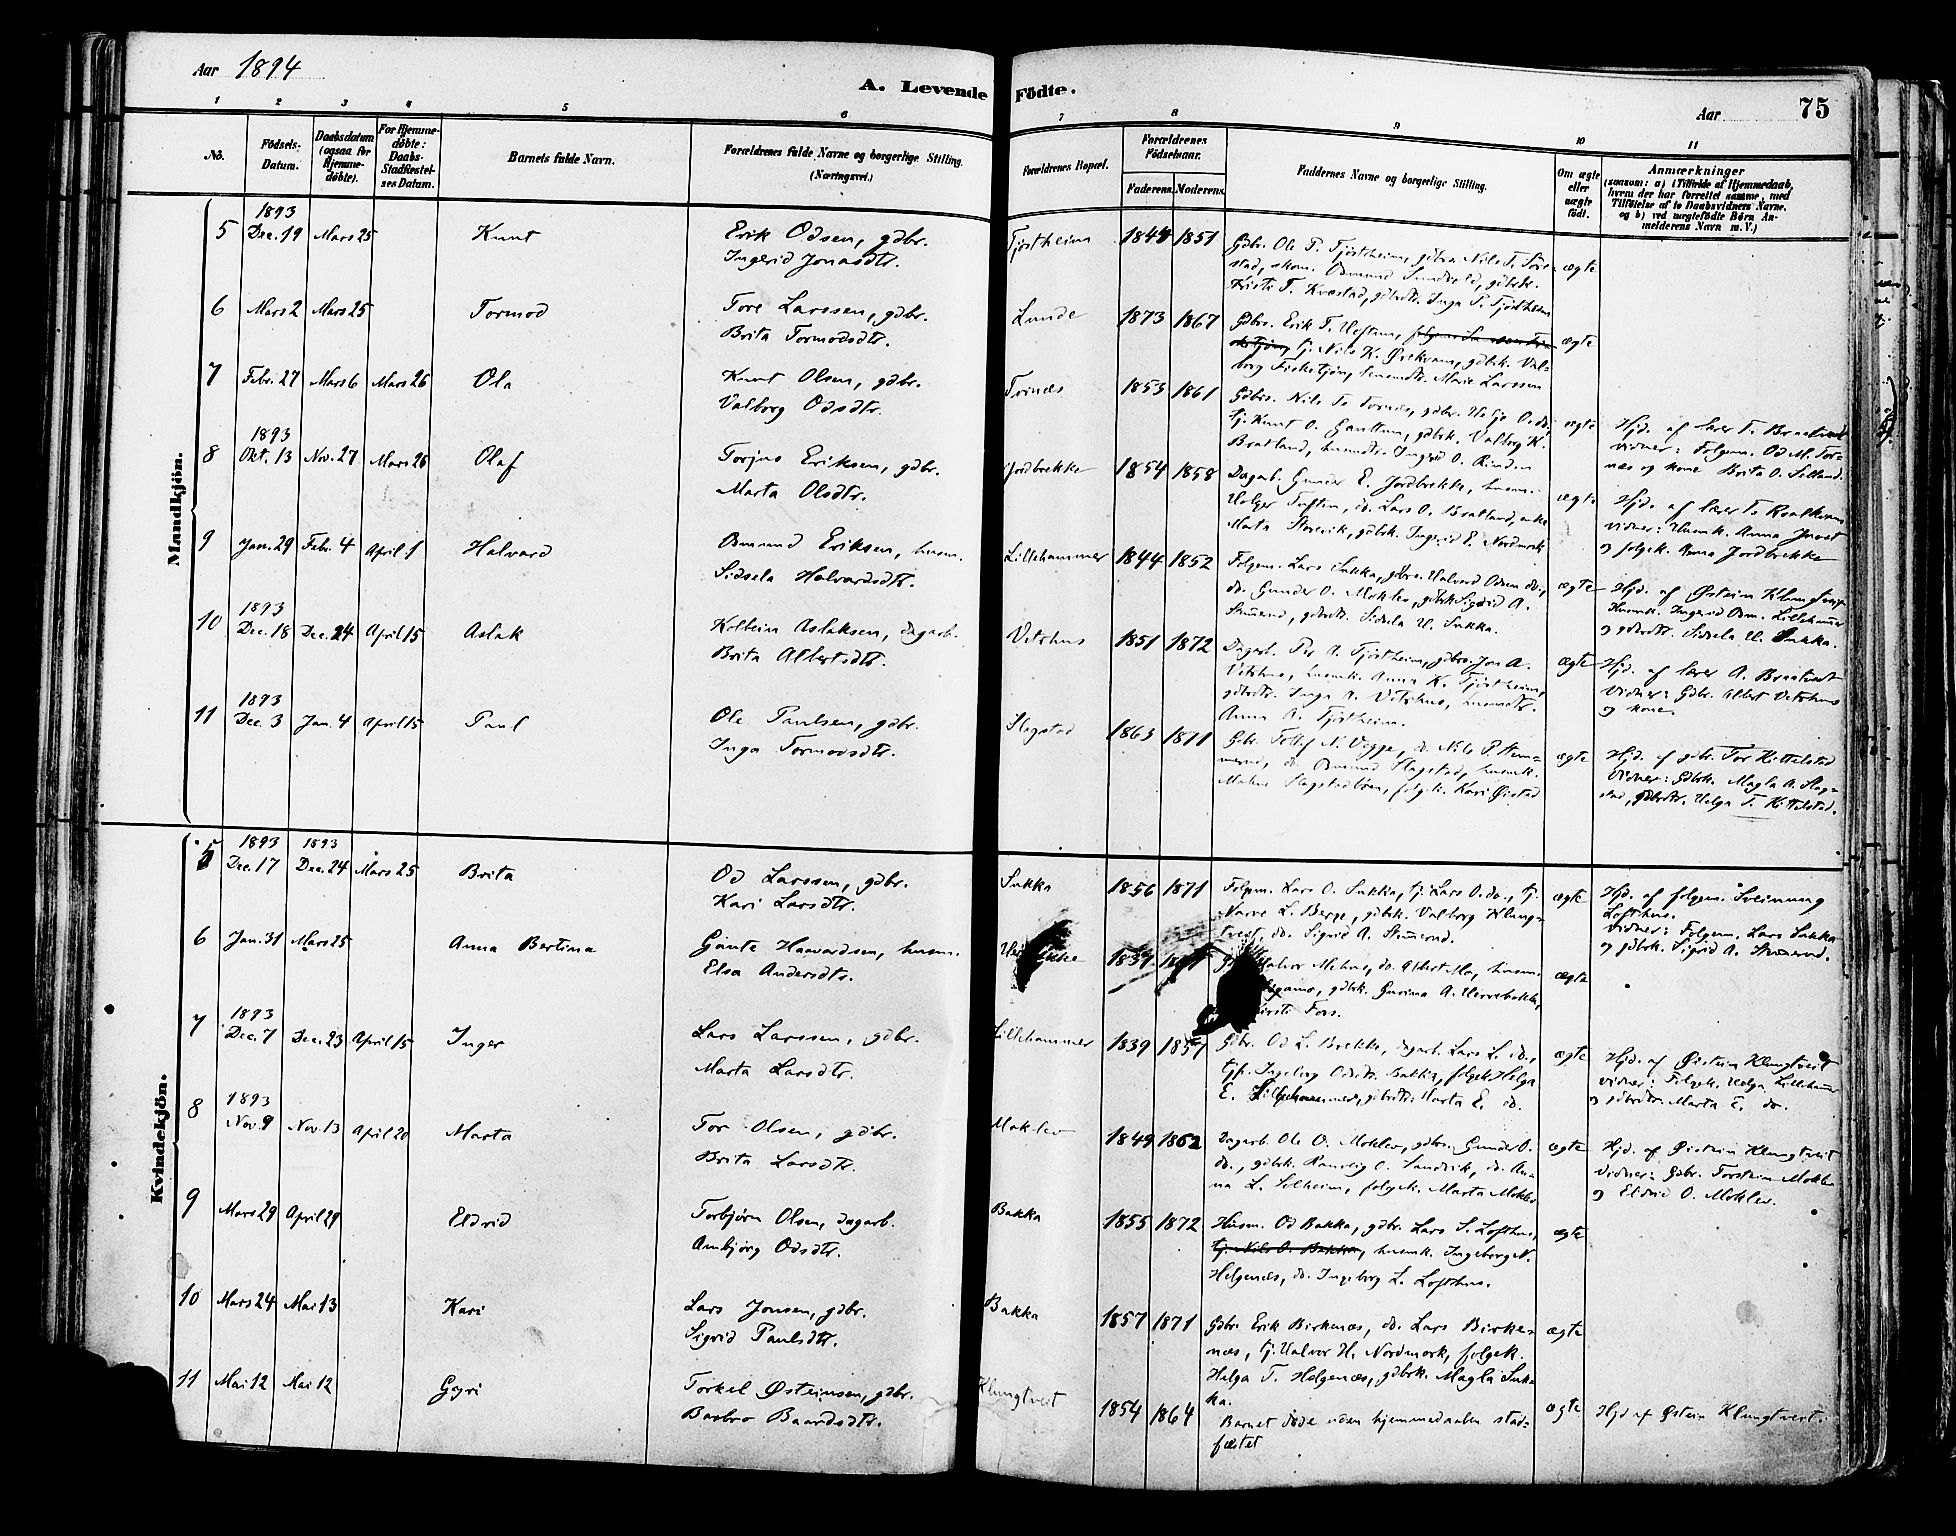 Aar 1894
A. Levende Födte.
Aar
75
1 2 3 4 5 6 7 8 9 10 11
No.
Födsels-Datum.
Daabsdatum (ogsaa for Hjemme-döbte).
For Hjemme-döbte: Daabs-Stadfæstel-ses Datum.
Barnets fulde Navn.
Forældrenes fulde Navne og borgerlige Stilling.
(Næringsvei.)
Forældrenes Bopæl.
Forældrenes Födselsaar.
Faderens. Moderens.
Faddernes Navne og borgerlige Stilling.
Om ægte eller uægte födt.
Anmærkninger
(saasom: a) i Tilfælde af Hjemmedaab,
hvem der har forrettet samme, med
Tilföielse af to Daabsvidners Navne.
og b) ved uægtefödte Børn An-
melderens Navn m. V.)
Mandkjön.
5 1893 Dec. 19 Mars 25 Knut
Erik Odsen, gdbr.
Ingerid Jonasdtr.
Tjøstheim 1844 1851
Gdbr. Ole T. Tjøstheim, gdbrs. Nils T.
gdbrdtr. Inga T. Tjøstheim
ægte
6 Mars 2 Mars 25 Tormod
Tore Larssen, gdbr.
Brita Tormodsdtr.
Lunde 1873 1867
Gdbrs. Erik T.
tj. Nils K. gdbrk. Val-
borg Fisketjøn, husmdtr. Marie Larssen
ægte
7 Febr. 27 Mars 6 Mars 26 Ola
Knut Olsen, gdbr.
Valborg Odsdtr.
Tornæs 1853 1861
Gdbrs. Nils T. Tornæs, gdbr. Helge O. do.
tj. Knut O. gdbrk. Valborg K.
Bratland, husmdtr. Ingrid O.
ægte
Hjd. af lærer T.
vidner: Folgem. Od M. Tor-
næs og kone Brita O. Selland.
8 1893 Okt. 13 Nov. 27 Mars 26 Olaf
Torjus Eriksen, gdbr.
Marta Olsdtr.
Jordbrekke 1854 1858
Dagarb. Gunder E. Jordbrekke, husm.
Holger Tuften, do. Lars O. Bratland, enke
Marta gdbrk. Ingerid E. Nordmork
ægte
Hjd. af lærer T.
vidner: Husmk. Anna
og folgek. Anna Jordbrekke
9 Jan. 29 Febr. 4 April 1 Halvard
Osmund Eriksen, husm.
Sidsela Halvardsdtr.
Lillehammer 1844 1852
Folgem. Lars Sukka, gdbrs. Halvard Odsen do.,
do. Gunder O. Moklev, gdbrk. Sigrid A.
gdbrdtr. Sidsela H. Sukka.
ægte
Hjd. af Østein Klungtveit
Husmk. Ingerid Osm. Lillehammer
og gdbrdtr. Sidsela H. Sukka.
10 1893 Dec. 18 Dec. 24 April 15 Aslak
Kolbein Aslaksen, dagarb.
Brita Albertsdtr.
Vetrhus 1851 1872
Dagarb. Per A. Tjøstheim, gdbrs. Jon A.
Vetrhus, husmk. Anna K. Tjøstheim,
gdbrdtr. Inga A. Vetrhus, husmdtr.
Anna A. Tjøstheim.
ægte
Hjd. af lærer A.
Vidner: Gdbr. Albert Vetrhus
og kone.
11 1893 Dec. 3 Jan. 4 April 15 Paul
Ole Paulsen, gdbr.
Inga Tormodsdtr.
Slogstad 1863 1871
Gbr. Tollef N. do. Nils P.
do. Osmund Slogstad, husmk.
folgek. Kari
ægte
Hjd. af gdbr. Tor Kittelstad
Vidner: Gdbrk. Magla A. Slog-
stad, gdbrdtr. Helga T. Kittelstad.
Kvindekjön.
5 1893 Dec. 17 1893 Dec. 24 Mars 25 Brita
Od Larssen, gdbr.
Kari Larsdtr.
Sukka 1856 1871
Folgem. Lars O. Sukka, tj. Lars O. do., tj.
Narve L. Berge, gdbrk. Valborg Klung-
tveit, do. Sigrid A.
ægte
Hjd. af folgem. Sveinung
Lofthus.
Vidner: Folgem. Lars Sukka
og gdbrk. Sigrid A.
6 Jan. 31 Mars 25 Anna Bertina
Gunte Haavardsen, husm.
Elsa Andersdtr.
1857
gdbrk. Gurina A.
Kirsti Fors.
ægte
7 1893 Dec. 7 Dec. 23 April 15 Inger
Lars Larssen, gdbr.
Marta Larsdtr.
Lillehammer 1839 1857
Gdbr. Od L. Brekke, dagarb. Lars L. do.,
Ingeborg Odsdtr. Bakka, folgek. Helga
E. Lillehammer, gdbrdtr. Marta E. do.
ægte
Hjd. af Østein Klungtveit
vidner: Folgek. Helga Lillehammer
og gdbrdtr. Marta E. do.
8 1893 Nov. 9 Nov. 13 April 20 Marta
Tor Olsen, gdbr.
Brita Larsdtr.
Moklev 1849 1862
Dagarb. Ole O. Moklev, gdbrs. Gunder O.
do., gdbrk. Ranveig O. Sandvik, do. An-
na L. Solheim, folgek. Marta Moklev
ægte
Hjd. af Østein Klungtveit
Vidner: Gdbr. Torstein Moklev
og Eldrid O. Moklev.
9 Mars 29 April 29 Eldrid
Torbjørn Olsen, dagarb.
Ambjørg Odsdtr.
Bakka 1855 1872
Husm. Od Bakka, gdbr. Lars S. Lofthus,
tj. Nils O. Bakka, husmk. Ingeborg N.
Helgenæs, do. Ingeborg L. Lofthus.
ægte
10 Mars 24 Mai 13 Kari
Lars Jonsen, gdbr.
Sigrid Paulsdtr.
Bakka 1857 1871
Gdbr. Erik Birkenæs, do. Lars Birke-
næs, tj. Halvor H. Nordmork, folgek.
Helga T. Helgenæs, gdbrk. Magla Suk-
ka.
ægte
11 Mai 12 Mai 12 Gyri
Torkel Østeinsen, gdbr.
Barbro Baardsdtr.
Klungtveit 1854 1864
Barnet døde uden hjemmedaaben stad-
fæstet
ægte
Hjd af Østein Klungtveit.